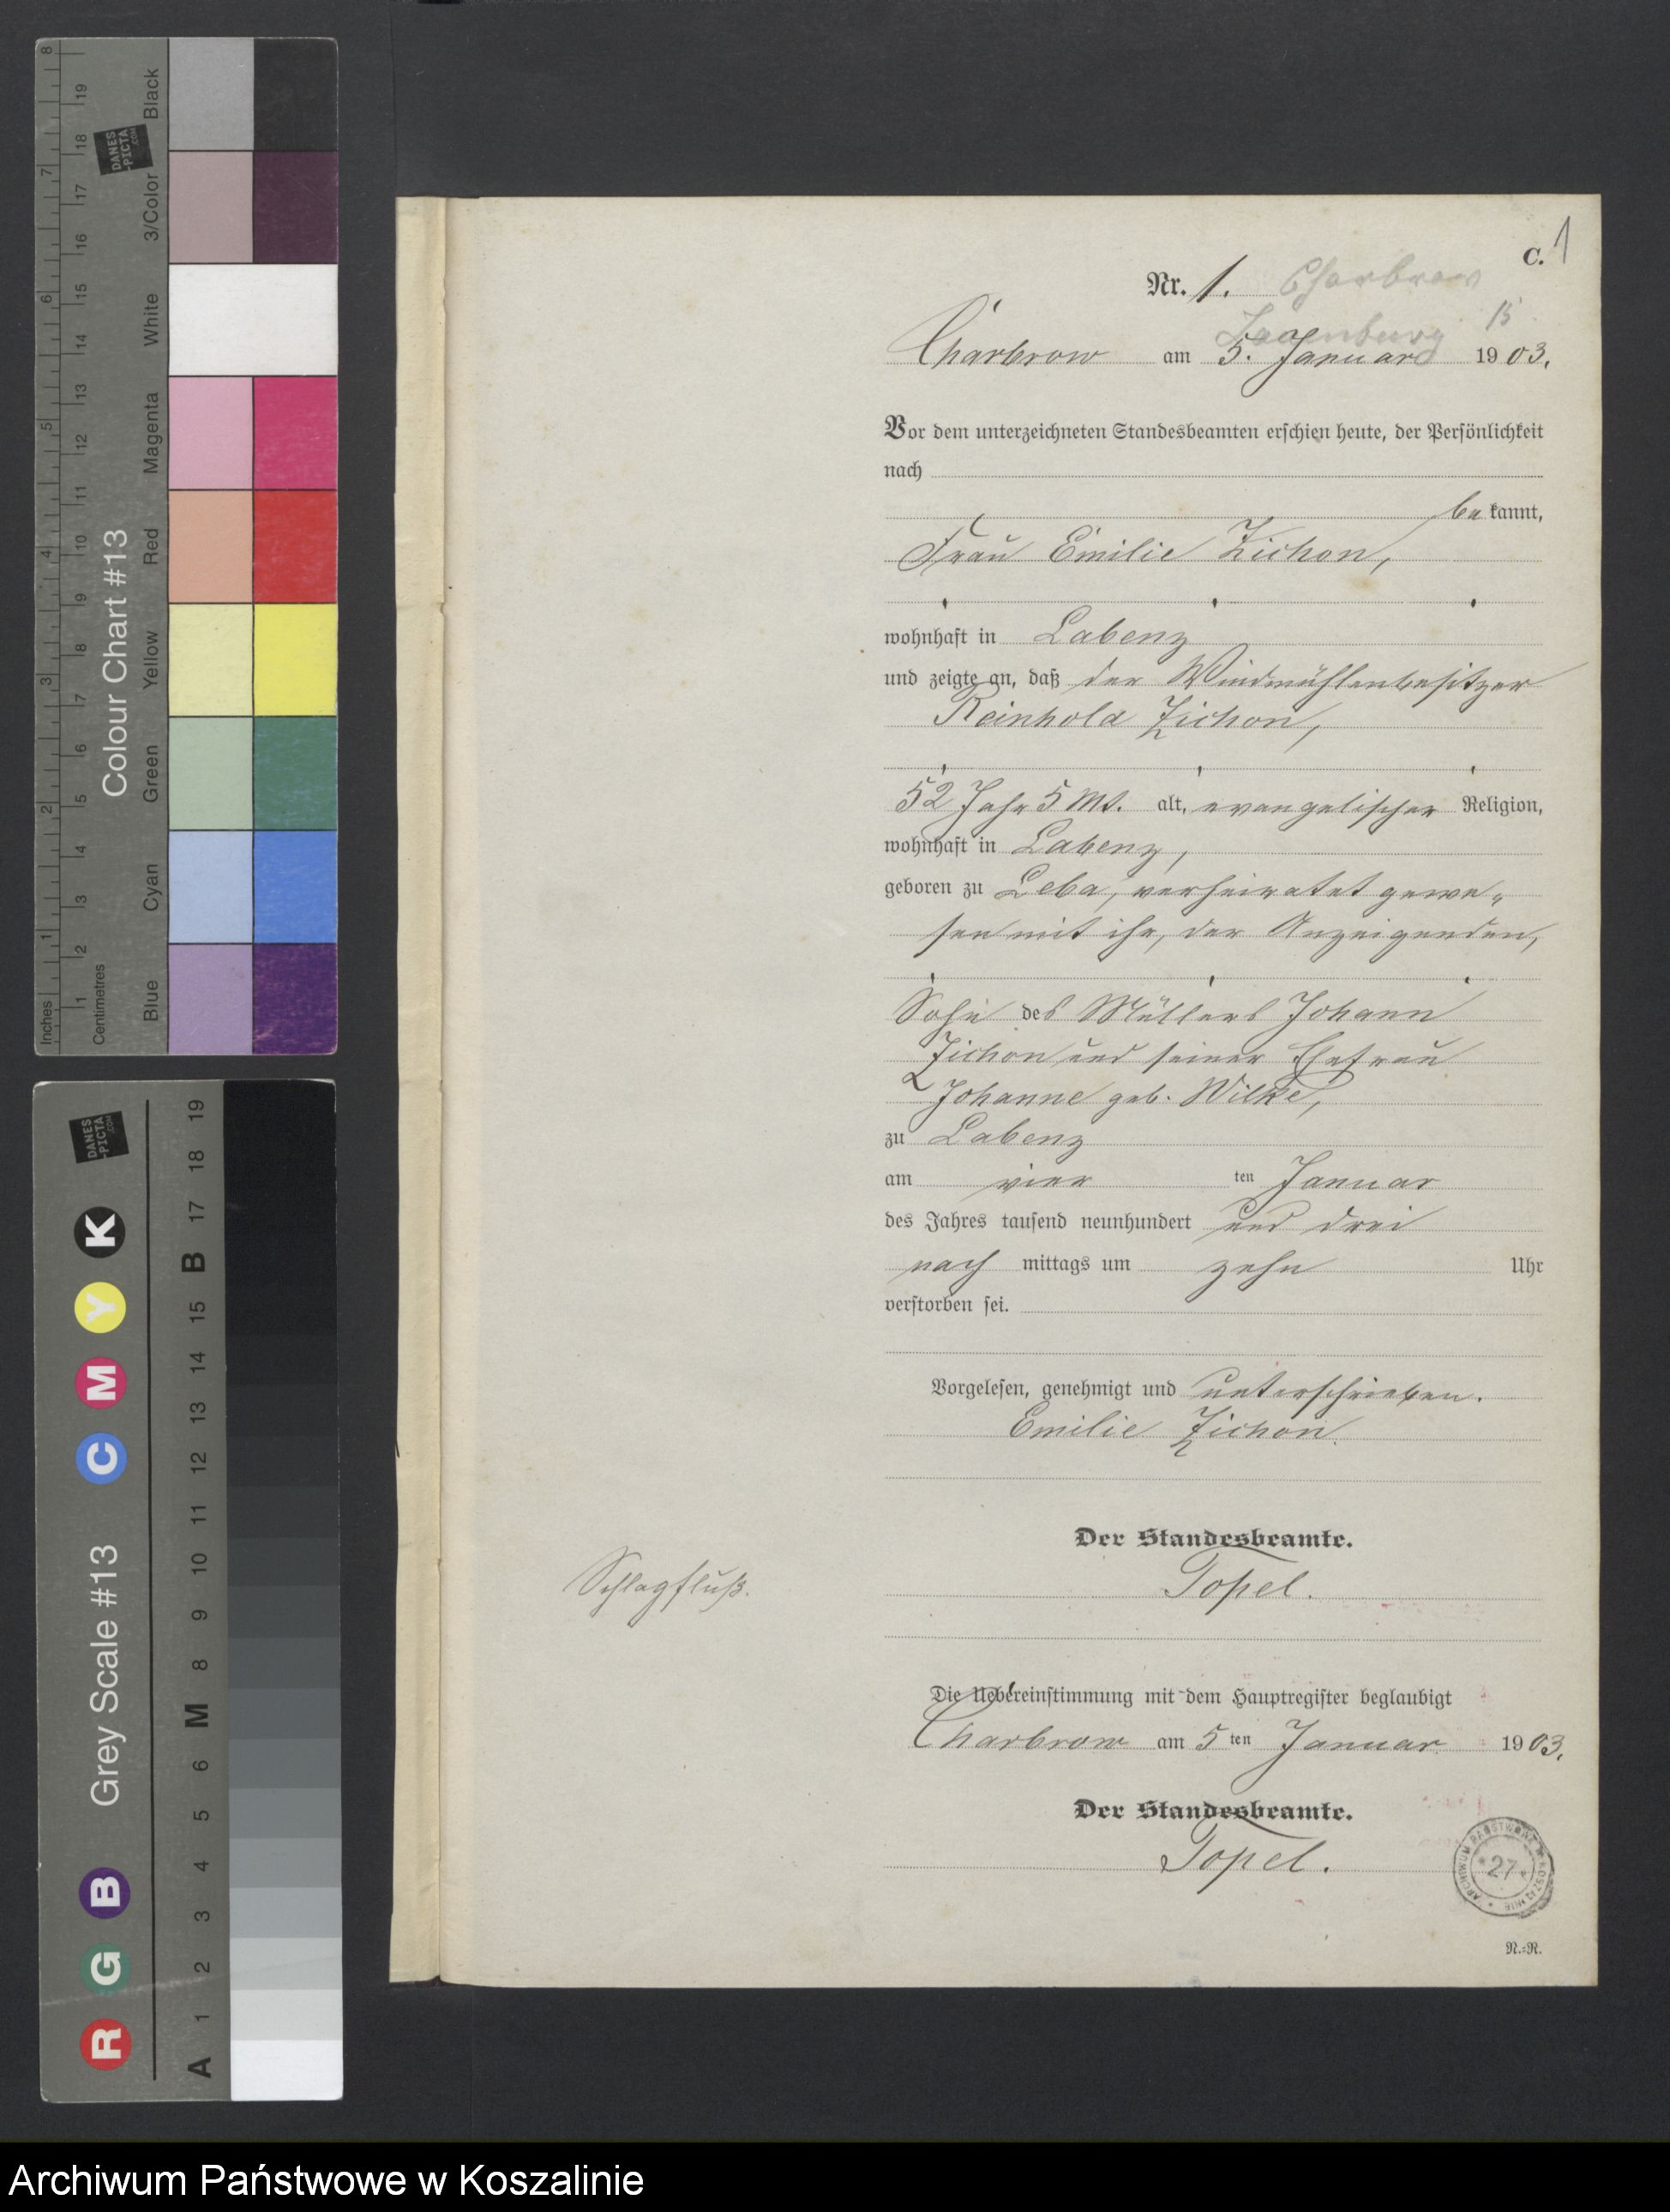 C. 1
Nr. 1. Charbrow
Lauenburg B
Charbrow am 5. Januar 1903.
Vor dem unterzeichneten Standesbeamten erschien heute, der Persönlichkeit
nach
bekannt,
Frau Emilie Zichon,
wohnhaft in Labenz
und zeigte an, daß der Windmühlenbesitzer
Reinhold Zichon,
52 Jahr 5 Mt. alt, evangelischer Religion,
wohnhaft in Labenz,
geboren zu Leba, verheiratet gewe-
sen mit ihr, der Anzeigenden,
Sohn des Müllers Johann
Zichon und seiner Ehefrau
Johanne geb. Wilke,
zu Labenz
am vier ten Januar
des Jahres tausend neunhundert und drei
nach mittags um zehn Uhr
verstorben sei.
Vorgelesen, genehmigt und unterschrieben.
Emilie Zichon.
Der Standesbeamte.
Topel.
Schlagfluß.
Die Uebereinstimmung mit dem Hauptregister beglaubigt
Charbrow am 5 ten Januar 1903.
Der Standesbeamte.
Topel.
ARCHIWUM PAŃSTWOWE W KOSZALINIE
27
N.=N.
Inches 1 2 3 4 5 6 7 8
Centimetres 1 2 3 4 5 6 7 8 9 10 11 12 13 14 15 16 17 18 19
Colour Chart #13
Blue Cyan Green Yellow Red Magenta White 3/Color Black
DANES
-PICTA
.COM
Grey Scale #13
R G B C M Y K
A 1 2 3 4 5 6 M 8 9 10 11 12 13 14 15 B 17 18 19
DANES
-PICTA
.COM
Archiwum Państwowe w Koszalinie